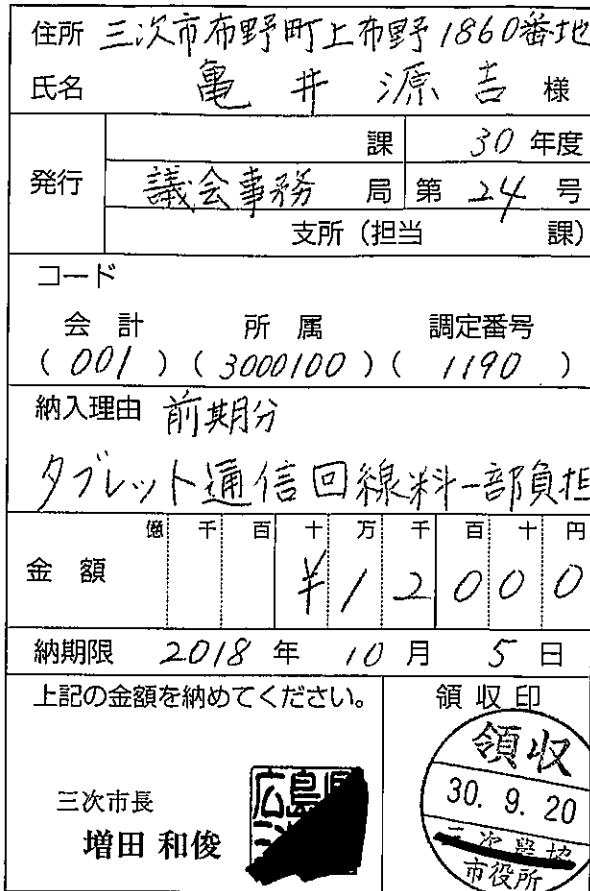 住所 三次市布野町上布野1860番地
氏名 亀井源吉 様
発行
課 30年度
議会事務 局 第 24 号
支所（担当 課）
コード
会計 所属 調定番号
（001）（3000100）（1190）
納入理由 前期分
タブレット通信回線料一部負担
億 千 百 十 万 千 百 十 円
金額 ¥12000
納期限 2018年 10月 5日
上記の金額を納めてください。
三次市長
増田 和俊
広島県
領収印
領収
30. 9. 20
市役所